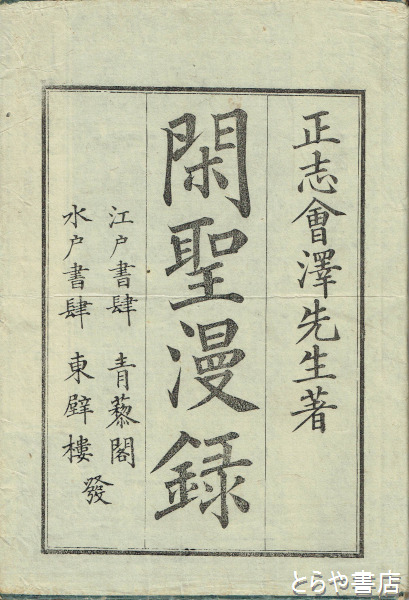 正志會澤先生著
閑聖漫録
江戸書肆 青藜閣
水戸書肆 東壁樓
發
とらや書店